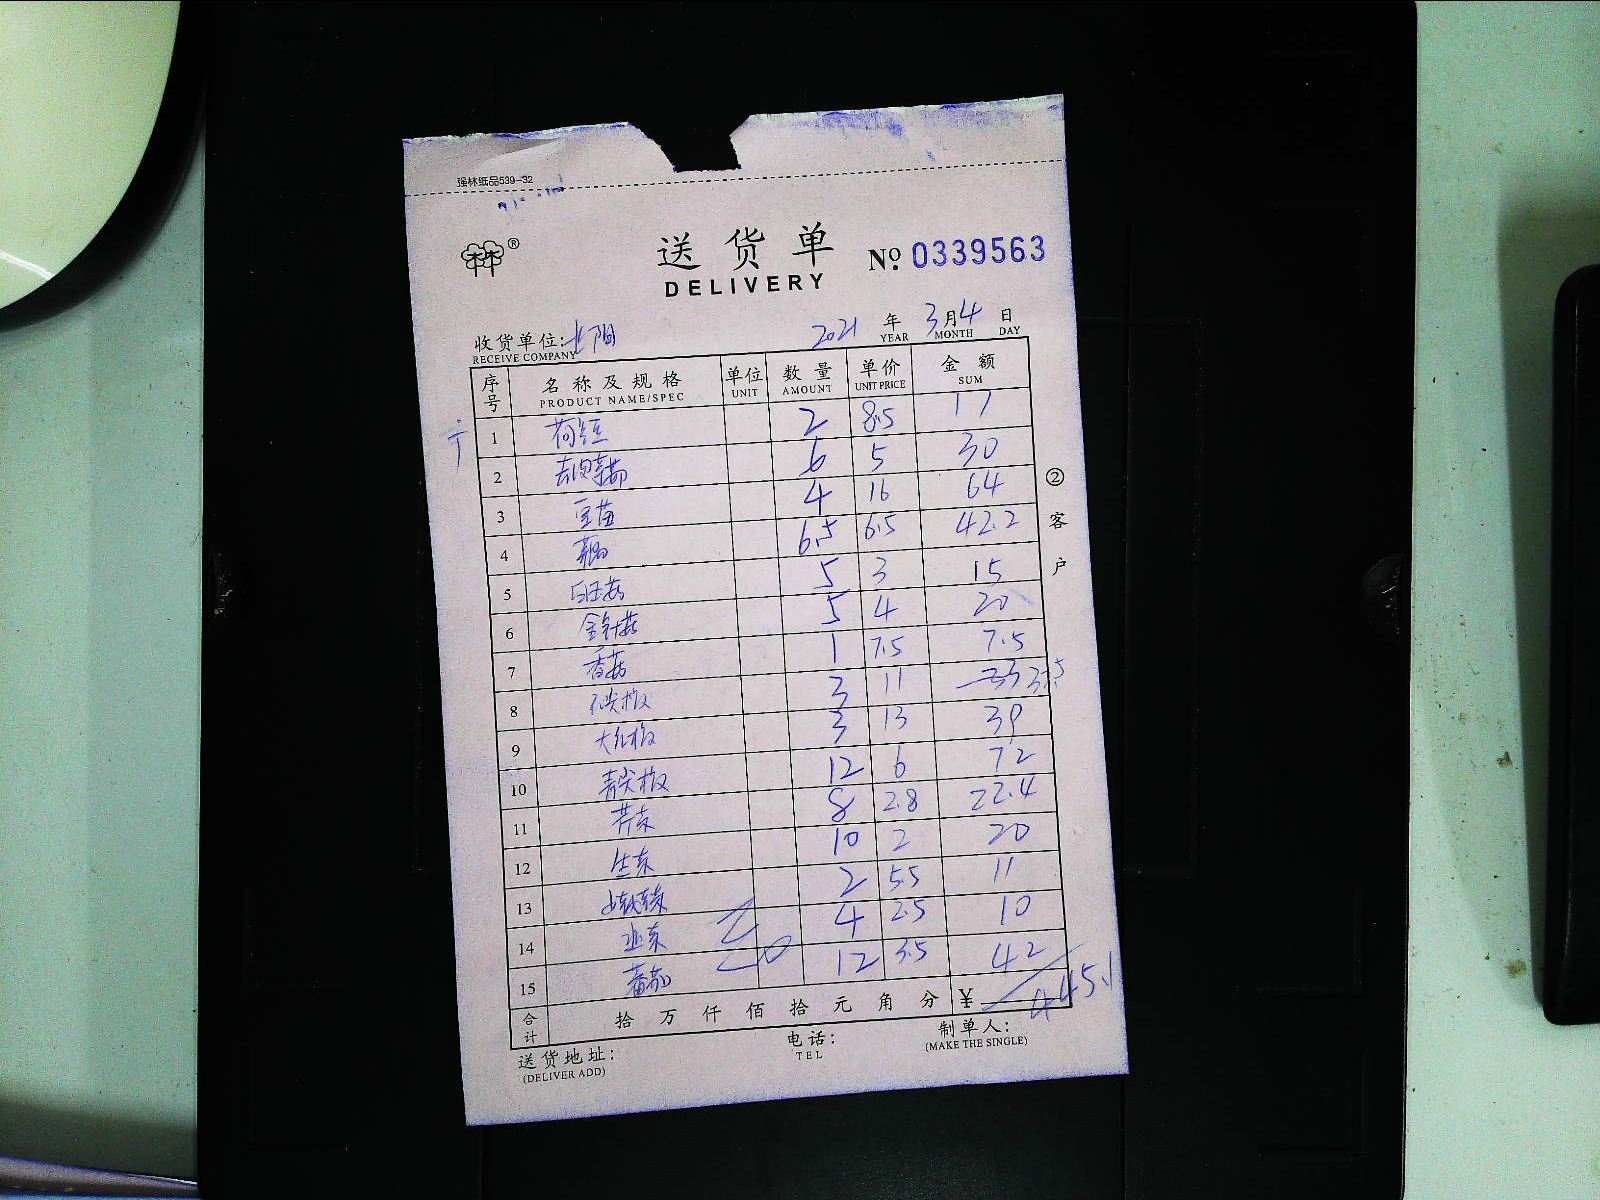 强林纸品539-32
林 ®
送货单 № 0339563
DELIVERY
收货单位: 2021 年 3月4 日
RECEIVE COMPANY YEAR MONTH DAY
序号 名称及规格 单位 数量 单价 金额
PRODUCT NAME/SPEC UNIT AMOUNT UNIT PRICE SUM
1 荷短豆 2 8.5 17
2 6 5 30
3 豆苗 4 16 64
4 6.5 6.5 42.2
5 白玉菇 5 3 15
6 金针菇 5 4 20
7 香菇 1 7.5 7.5
8 3 11
9 大红椒 3 13 39
10 青尖椒 12 6 72
11 芹菜 8 2.8 22.4
12 生菜 10 2 20
13 2 5.5 11
14 韭菜 4 2.5 10
15 蕃茄 12 3.5 42
合计 拾 万 仟 佰 拾 元 角 分 ¥ 445.1
送货地址: 电话: 制单人:
(DELIVER ADD) TEL (MAKE THE SINGLE)
② 客户